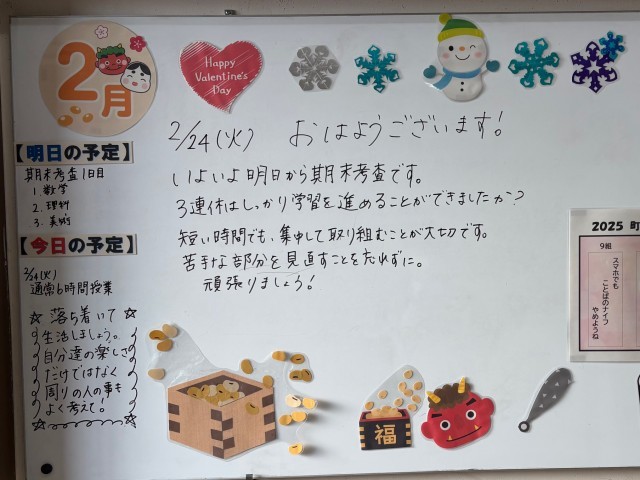 2月
Happy
Valentine's
Day
2/24(火) おはようございます!
いよいよ明日から期末考査です。
3連休はしっかり学習を進めることができましたか?
短い時間でも、集中して取り組むことが大切です。
苦手な部分を見直すことを忘れずに。
頑張りましょう!
【明日の予定】
期末考査1日目
1. 数学
2. 理科
3. 美術
【今日の予定】
2/24(火)
通常6時間授業
☆ 落ち着いて ☆
生活しましょう。
自分達の楽しさ
だけではなく
周りの人の事も
よく考えて!
福
2025 町
9組
スマホでも
ことばのナイフ
やめようね